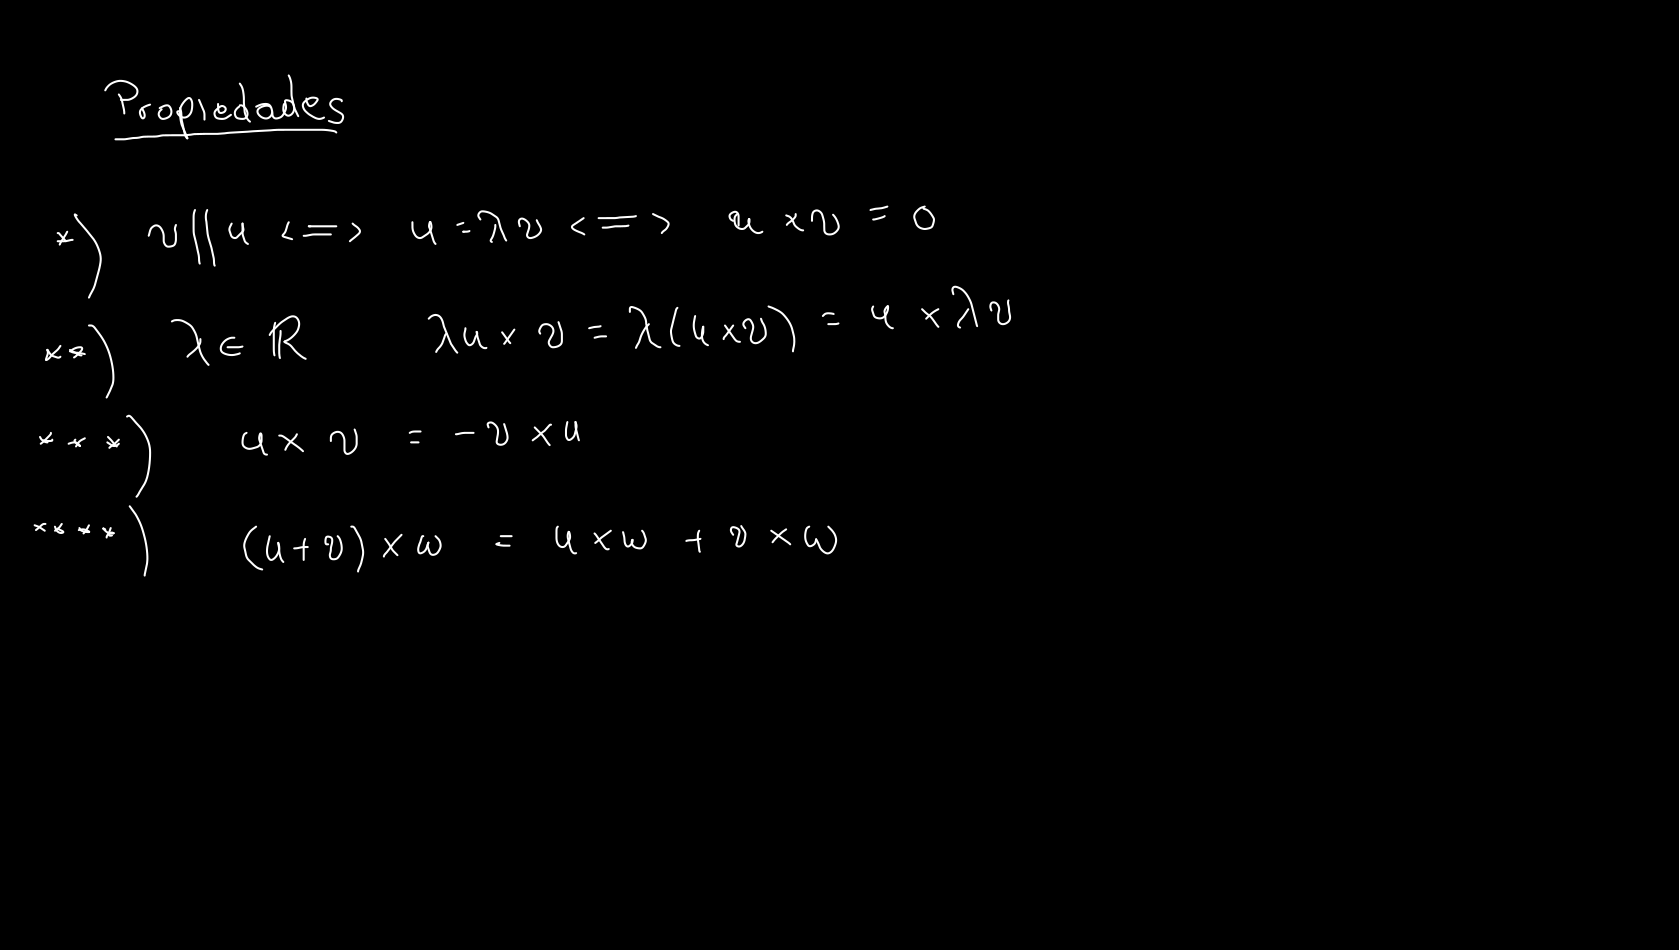 Propiedades
*) v || u <=> u = λv <=> u × v = 0
**) λ ∈ ℝ λu × v = λ(u × v) = u × λv
***) u × v = - v × u
****) (u + v) × w = u × w + v × w